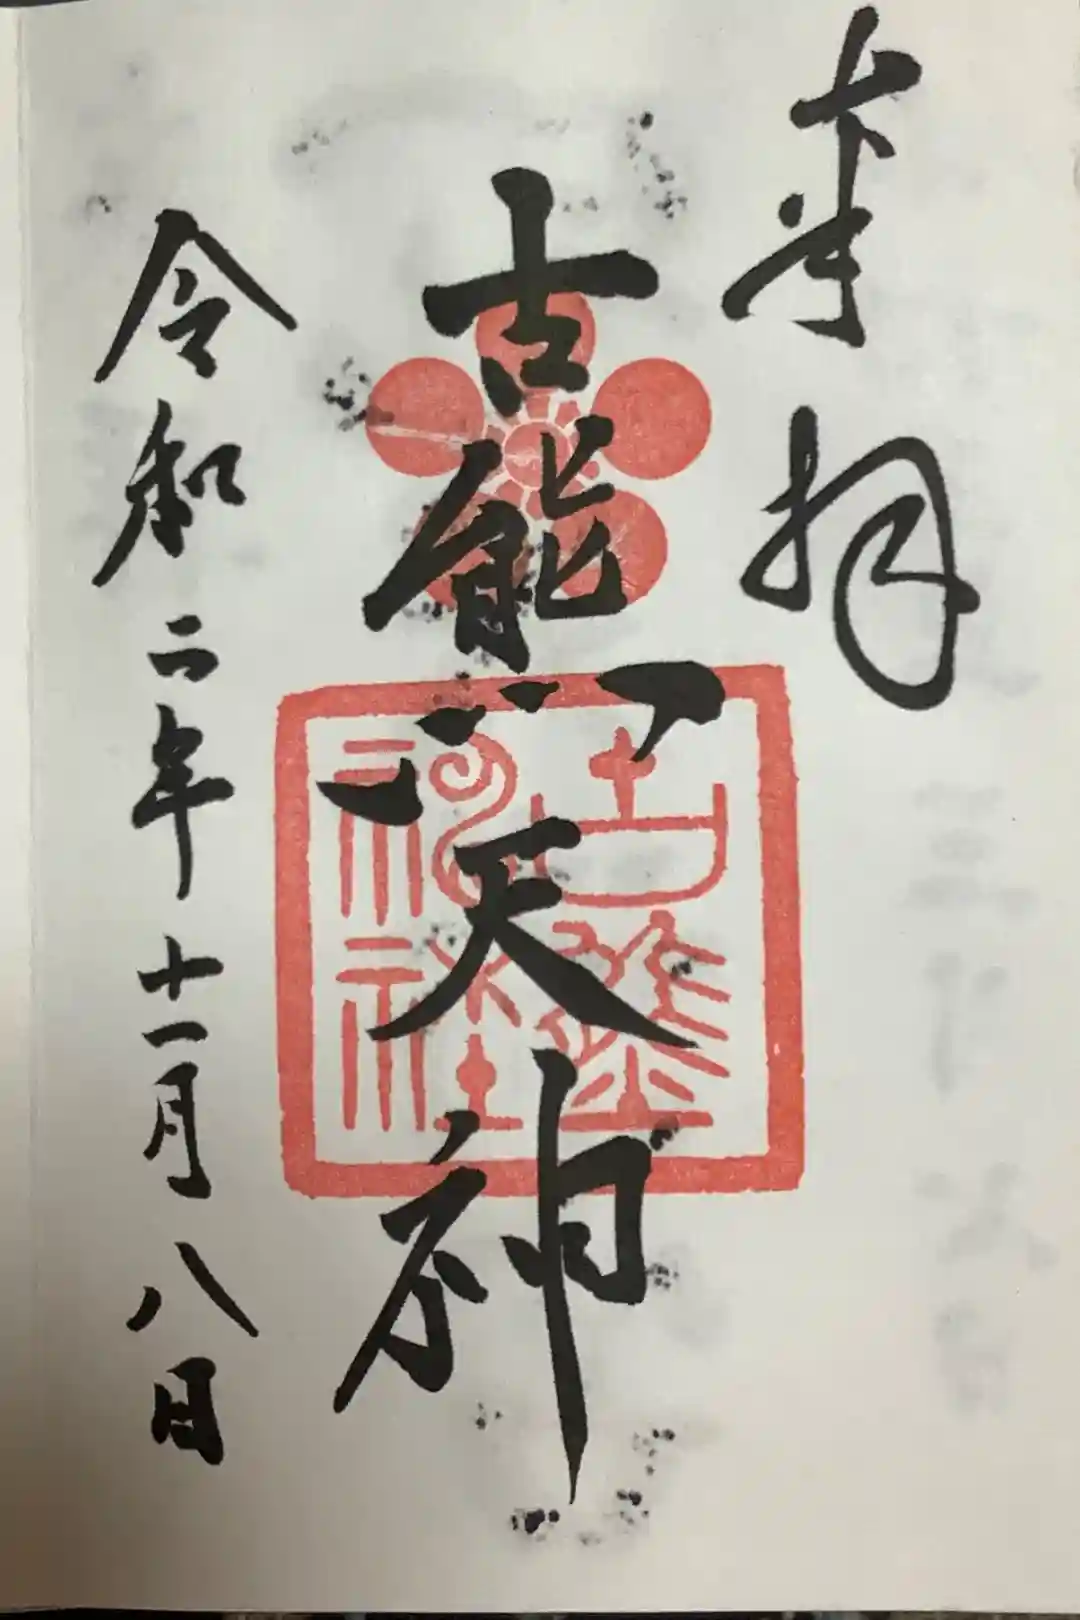 奉拝
古熊天神
古熊神社
令和二年十一月八日